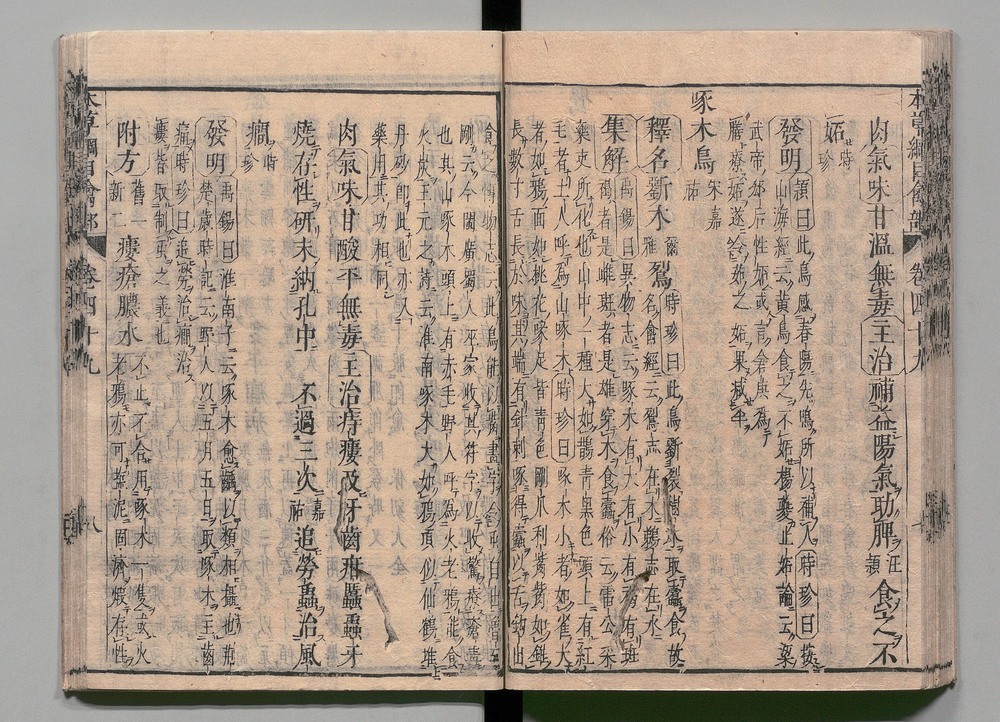 肉氣味甘溫無毒主治補益陽氣助脾汪頴食之不
妬時珍
發明頴曰此鳥感春陽先鳴所以補人時珍曰按
山海經云黃鳥食之不妬楊夔止妬論云梁
武帝郗后性妬或言倉庚爲
膳療妬遂令茹之妬果減半
啄木鳥宋嘉祐
釋名斲木爾雅鴷時珍曰此鳥斲裂樹木取蠹食故
名禽經云鴷志在木鷧志在水
集解禹錫曰異物志云啄木有大有小有褐有斑
褐者是雌斑者是雄穿木食蠹俗云雷公采
藥吏所化也山中一種大如鵲青黑色頭上有紅
毛者土人呼爲山啄木時珍曰啄木小者如雀大
者如鴉面如桃花喙足皆青色剛爪利觜觜如錐
長數寸舌長於味其端有針刺啄得蠹以舌鉤出
食之博物志云此鳥能以觜畫字令蟲自出魯至
剛云今閩廣蜀人巫家收其符字以收驚療瘡毒
也其山啄木頭上有赤毛野人呼爲火老鴉能食
火炭王元之詩云淮南啄木大如鴉頂似仙鶴堆
丹砂卽此也亦入
藥用其功相同
肉氣味甘酸平無毒主治痔瘻及牙齒疳䘌蟲牙
燒存性研末納孔中不過三次嘉祐追勞蟲治風
癇時珍
發明禹錫曰淮南子云啄木愈齲以類相攝也荊
楚歲時記云野人以五月五日取啄木主齒
痛時珍曰追勞治癇治
瘻皆取制蟲之義也
附方舊一新二瘻瘡膿水不止不合用啄木一隻或火
老鴉亦可鹽泥固濟煅存性
本草綱目禽部
卷四十九
八